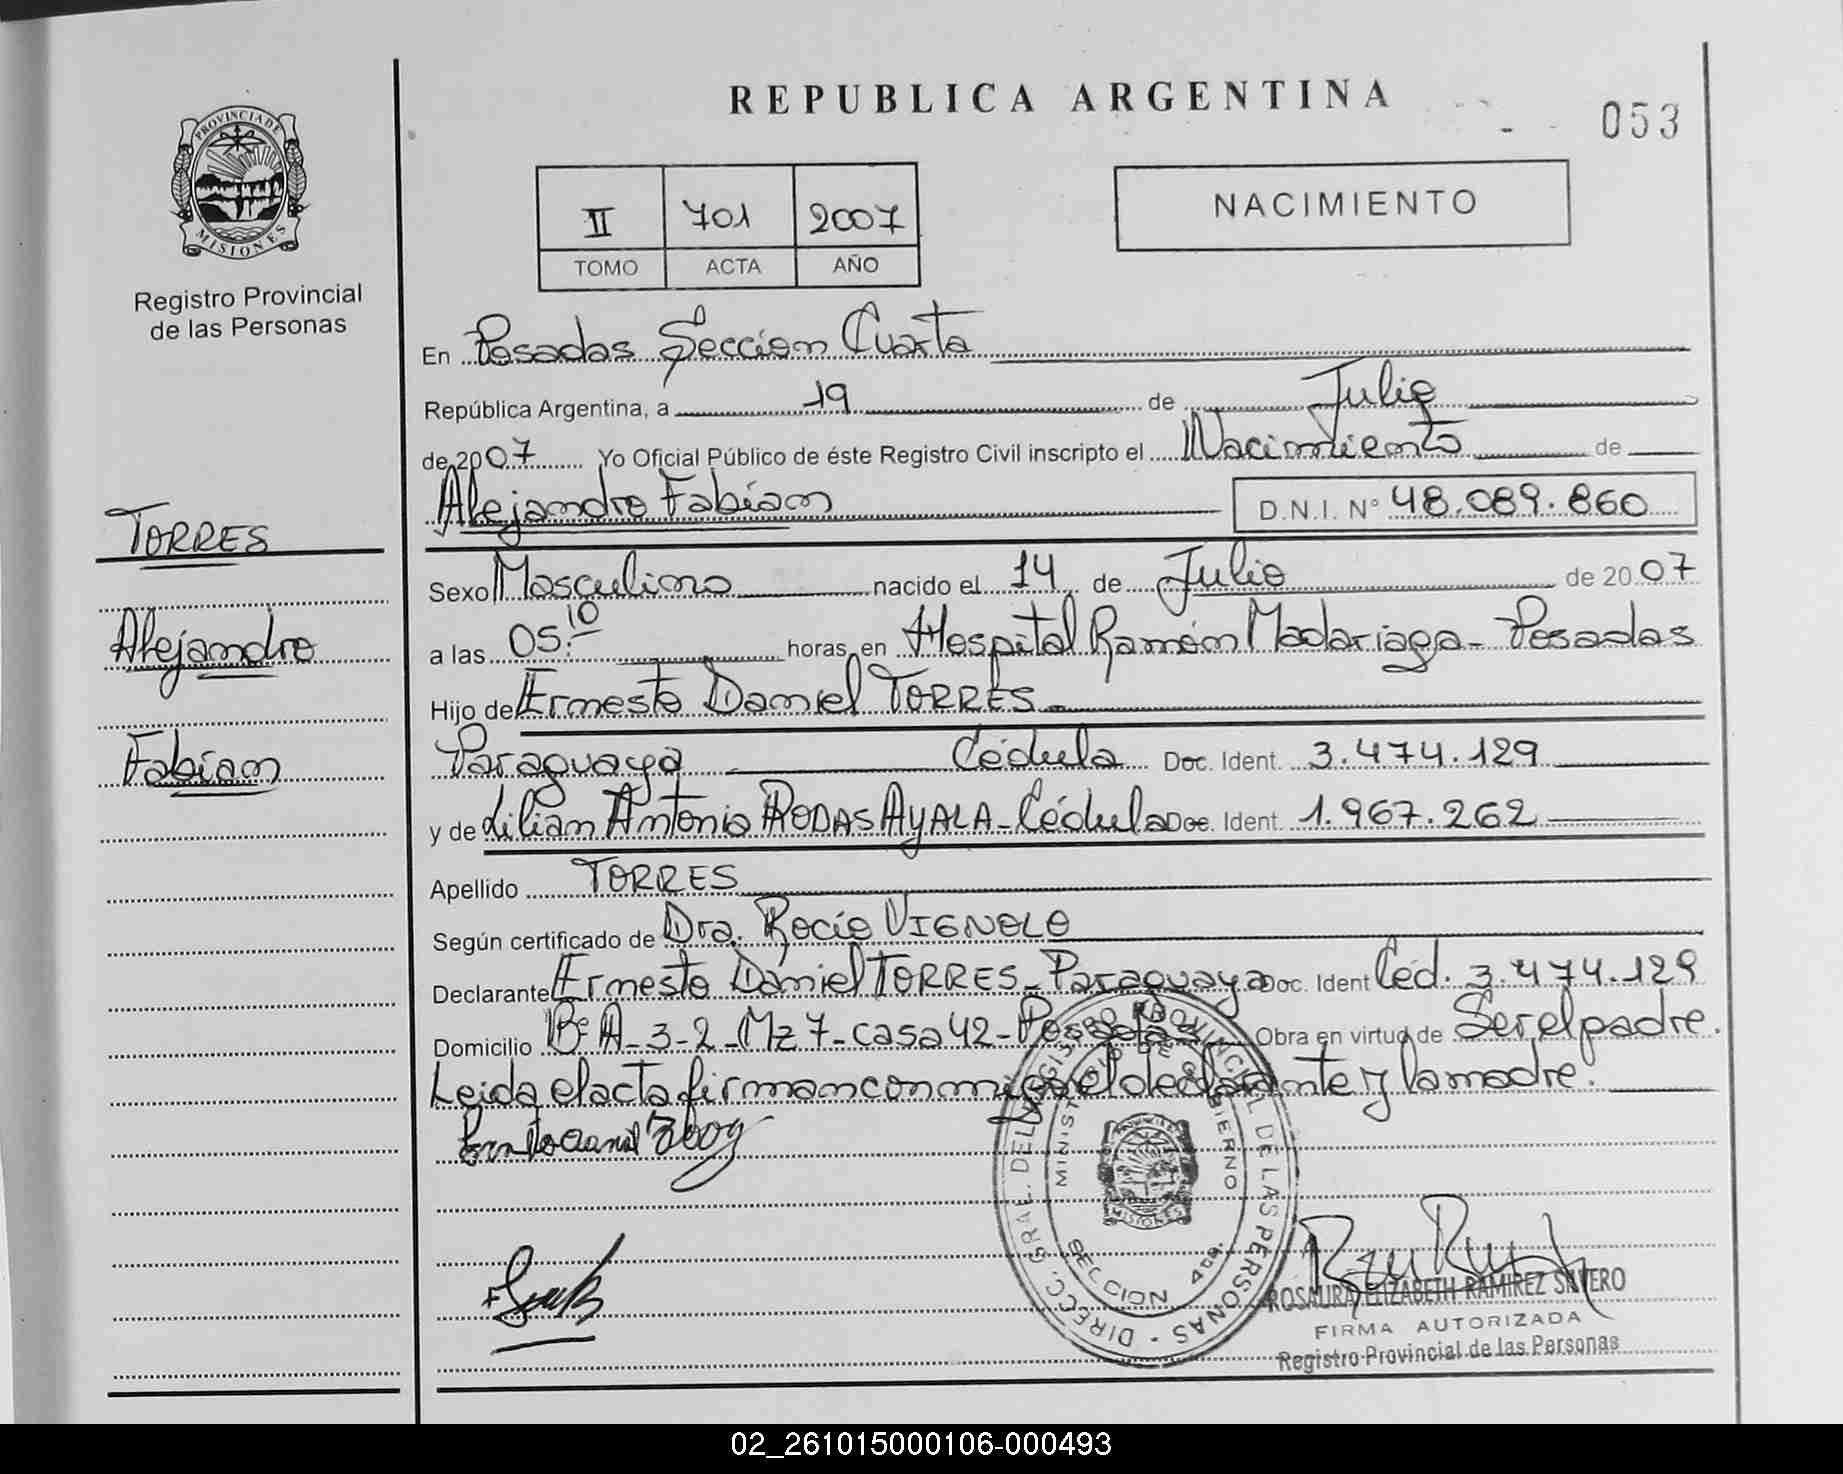 REPUBLICA ARGENTINA
053
PROVINCIA DE
MISIONES
Registro Provincial
de las Personas
II 701 2007
TOMO ACTA AÑO
NACIMIENTO
En Posadas Seccion Cuarta
República Argentina, a 19 de Julio
de 2007 Yo Oficial Público de éste Registro Civil inscripto el Nacimiento de
Alejandro Fabian D.N.I. Nº 48.089.860
TORRES
Alejandro
Fabian
Sexo Masculino nacido el 14 de Julio de 2007
a las 05:10 horas en Hospital Ramón Madariaga - Posadas
Hijo de Ernesto Daniel TORRES
Paraguaya Cédula Doc. Ident. 3.474.129
y de Lilian Antonia RODAS AYALA - Cédula Doc. Ident. 1.967.262
Apellido TORRES
Según certificado de Dra. Rocío VIGNOLO
Declarante Ernesto Daniel TORRES - Paraguaya Doc. Ident Céd. 3.474.129
Domicilio Bº A-3-2-Mz 7-casa 42-Posadas Obra en virtud de Ser el padre.
Leida el acta firman conmigo el declarante y la madre.
DIRECC. GRAL. DEL REGISTRO PROVINCIAL DE LAS PERSONAS
MINISTERIO DE GOBIERNO
SECCION 4ta.
MISIONES
ROSAURA ELIZABETH RAMIREZ SAVERO
FIRMA AUTORIZADA
Registro Provincial de las Personas
02_261015000106-000493